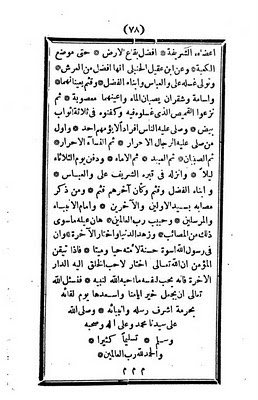 (٧٨)
اعضاءه الشريفة * افضل بقاع الارض * حتى موضع
الكعبة * وعن ابن عقيل الحنبلي انها افضل من العرش *
وتولى غسله على والعباس وابناه الفضل وقثم يعينانهما *
واسامة وشقران يصبان الماء واعينهما معصوبة * ثم
نزعوا القميص الذى غسلوه فيه وكفنوه في ثلاثة اثواب
بيض * وصلى عليه الناس افراداً لا يؤمهم احد * واول
من صلى عليه الرجال الاحرار * ثم النساء الاحرار *
ثم الصبيان * ثم العبيد * ثم الاماء * ودفن يوم الثلاثاء
ليلاً * وانزله في قبره الشريف على والعباس *
وابناه الفضل وقثم وكان آخرهم قثم * ومن ذكر
مصابه بسيد الاولين والآخرين * وامام الانبياء
والمرسلين * وحبيب رب العالمين * هان عليه ماسوى
ذلك من المصائب * وزهد الدنيا واختار الآخرة * وان
في رسول الله اسوة حسنة لامته حيا وميتا * فاذا تيقن
المؤمن ان الله تعالى اختار لاحب الخلق اليه الدار
الآخرة فانه يحب لنفسه ما احبه الله لنبيه * فنسئل الله
تعالى ان يجعل خير ايامنا واسعدها يوم لقائه
بحرمة اشرف رسله وانبيائه * وصلى الله
على سيدنا محمد وعلى آله وصحبه
وسلم * تسليماً كثيرا *
والحمد لله رب العالمين *